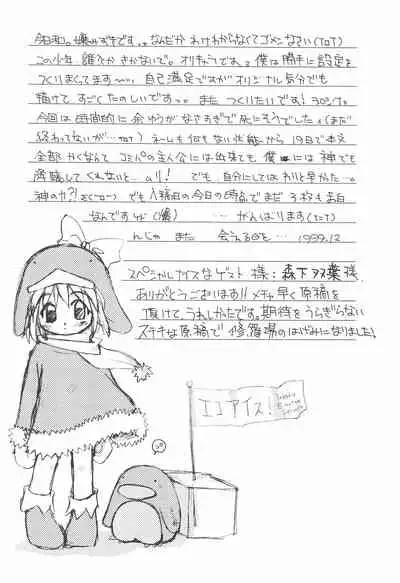 今日和。嬢みずきです。。なんだかわけわからなくてゴメンなさい(ToT)
この少年 誰だかさかないで。オリキャラです。僕は勝手に設定を
つくりまくってます〜〜。自己満足ですがオリジナル気分でも
描けて すごくたのしいですっ。 また つくりたいです!
今回は時間的に余ゆうがなさすぎて死にそうでした。(まだ
終わってないが…ToT) ネームも何もない状態から 19日で本文
全部かくなんて コミパの主人公には出来ても 僕には神でも
光臨してくれないと…ムリ! でも、自分にしてはわりと早かった…
神の力?! Σ( ) でも入稿日の今日の時点でまだ 3枚も真白
なんですけど(爆) …がんばります(ToT)
んじゃ また 会える日を… 1999.12
スペシャルナイスなゲスト 様:森下双葉 様
ありがとうございます!!メチャ早く原稿を
頂けて、うれしかたです。期待をうらぎらない
ステキな原稿で 修羅場のはげみになりました!
エコアイス!